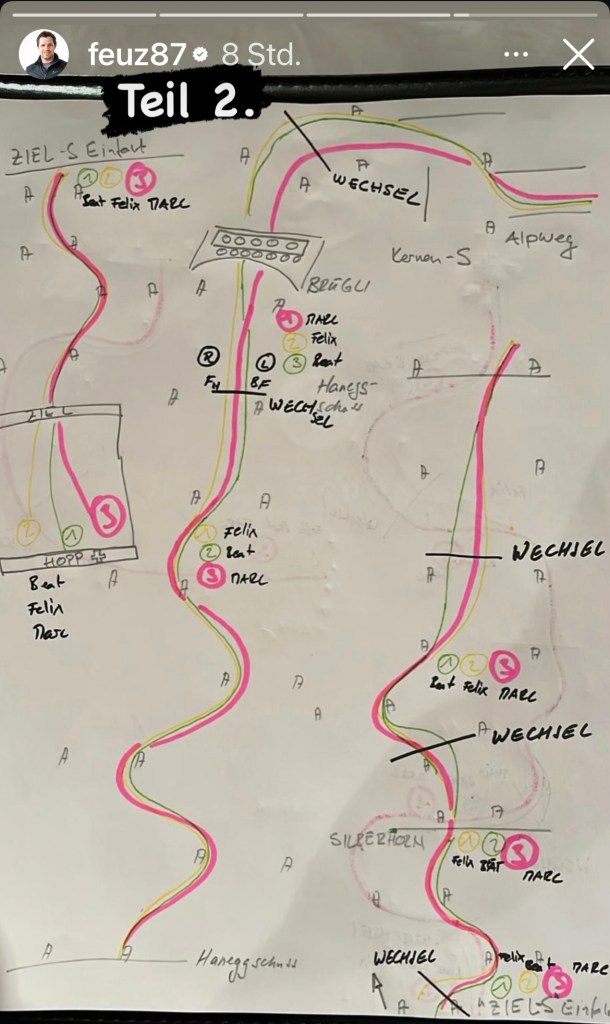 feuz87 8 Std.
Teil 2.
ZIEL-S Einfart
1 2 3
Beat Felix MARC
ZIEL
2 1 3
HOPP
Beat
Felix
Marc
WECHSEL
Kernen-S
Alpweg
BRÜGLI
1 MARC
2 Felix
3 Beat
R L
FH BF
Hanegg-
schuss
WECH
SEL
1 Felix
2 Beat
3 MARC
Haneggschuss
WECHSEL
1 2 3
Beat Felix MARC
WECHSEL
SILBERHORN
1 2 3
Felix BEAT MARC
WECHSEL
Felix Beat MARC
1 2 3
"ZIEL-S Einfart